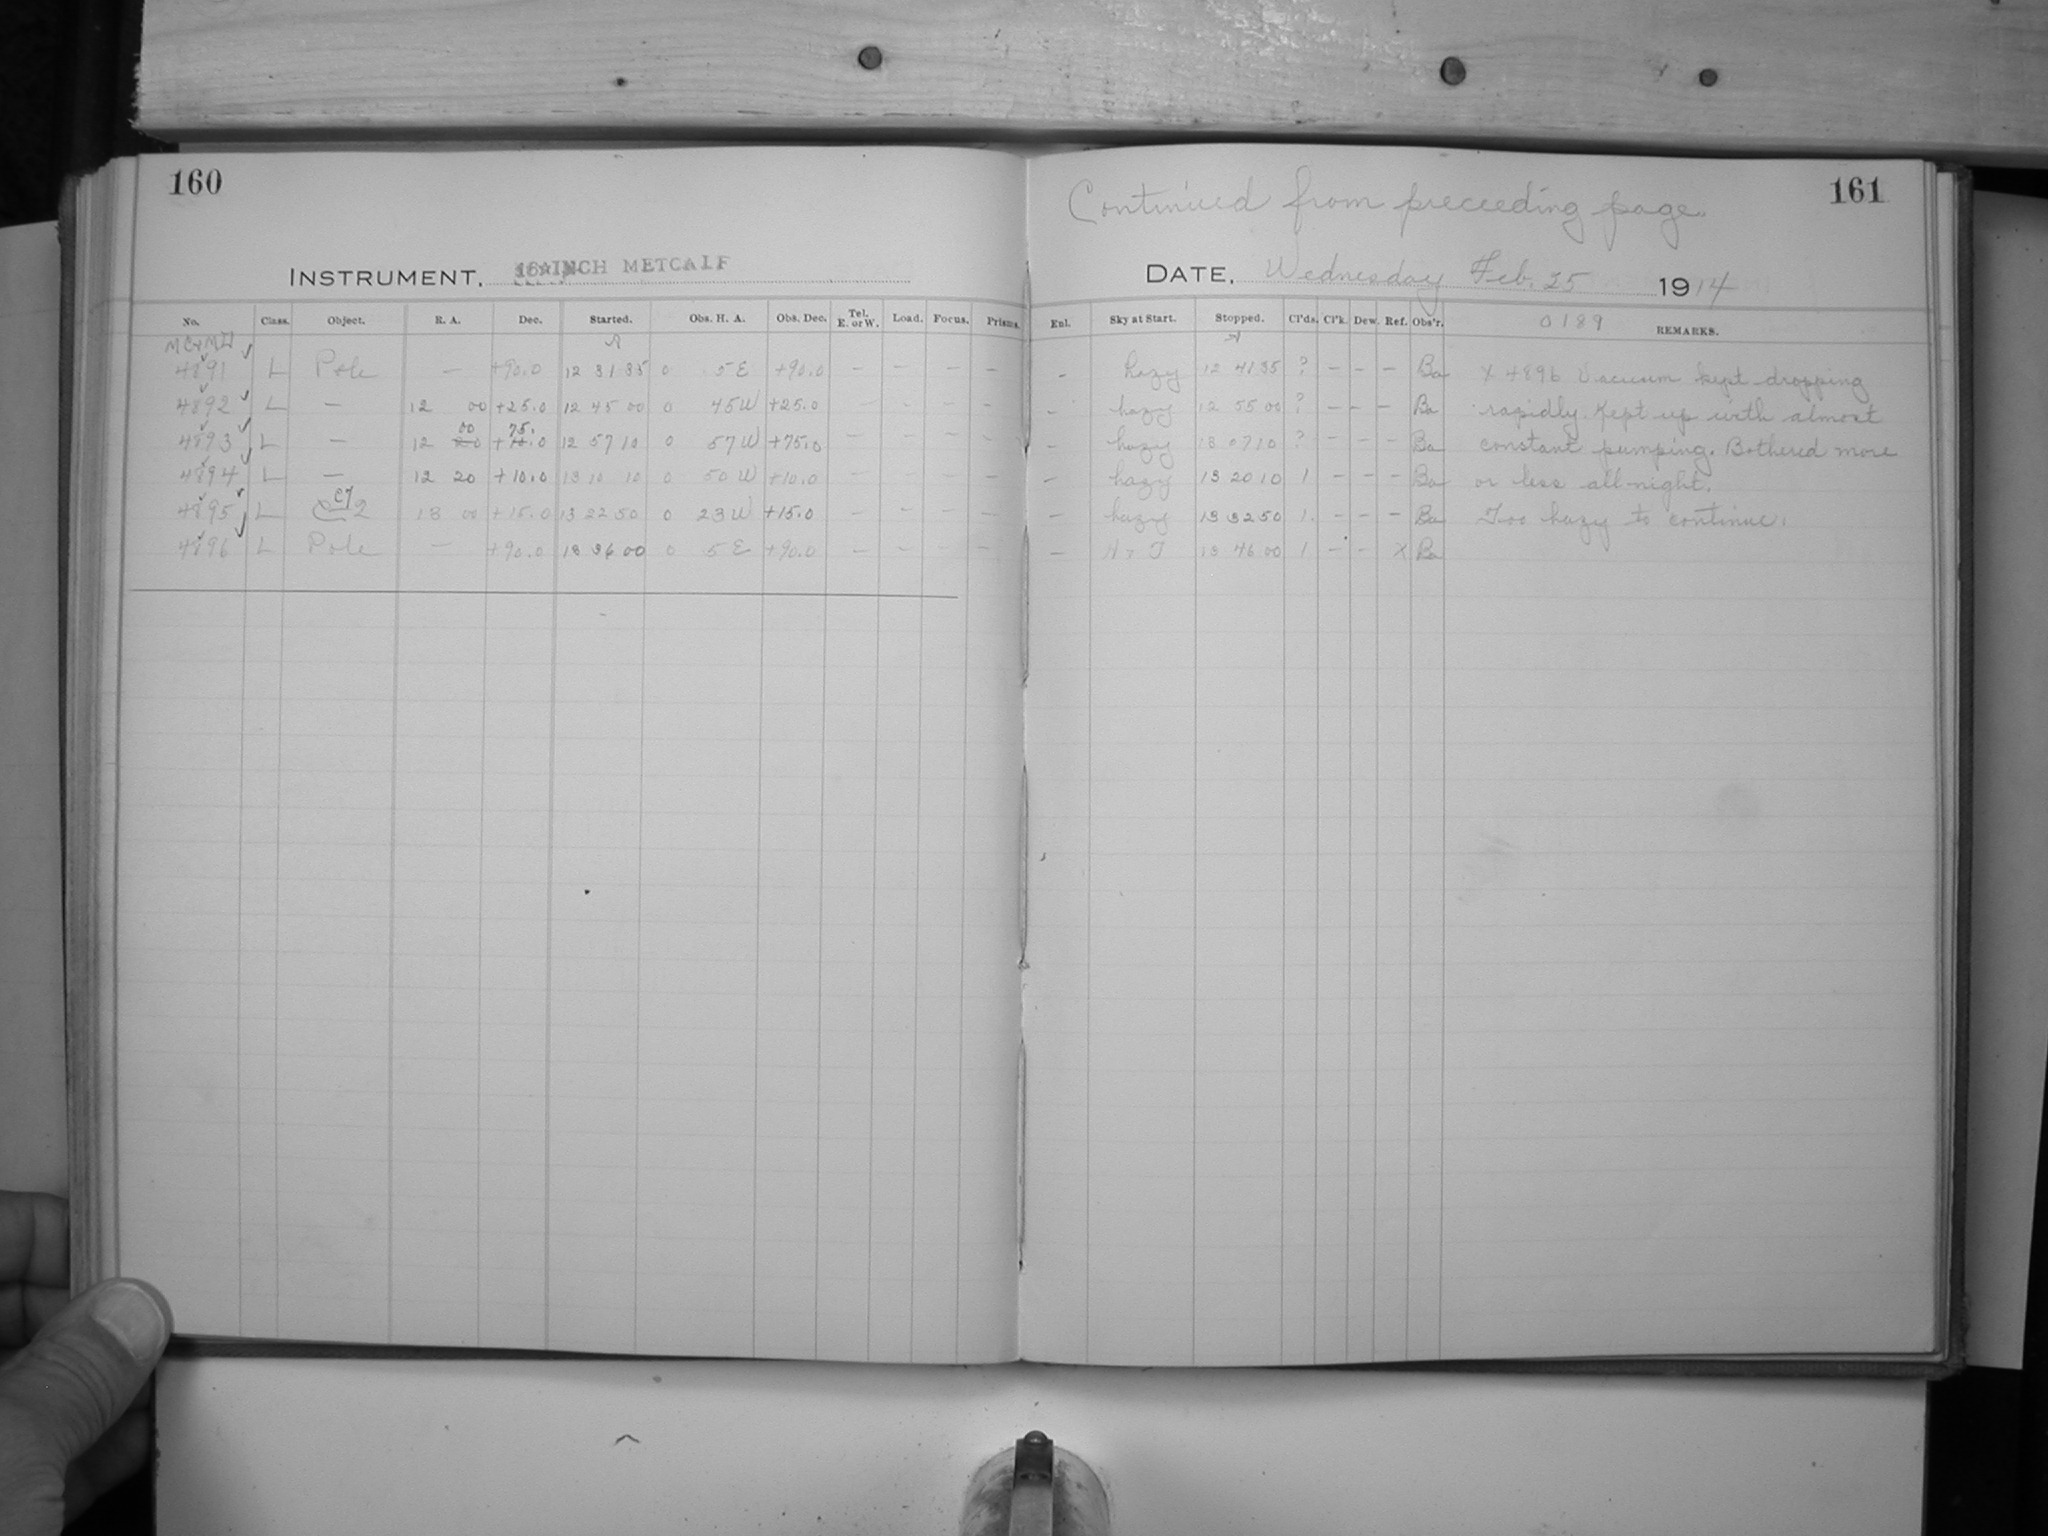 160
INSTRUMENT, 16-INCH METCALF
No. Class. Object. R. A. Dec. Started. Obs. H. A. Obs. Dec. Tel. E. or W. Load. Focus. Prisms.
4891 L Pole — +90.0 12 31 35 0 5 E +90.0 — — — —
4892 L — 12 00 +25.0 12 45 00 0 45 W +25.0 — — — —
00 75.
4893 L — 12 20 +10.0 12 57 10 0 57 W +75.0 — — — —
4894 L — 12 20 +10.0 13 10 10 0 50 W +10.0 — — — —
4895 L C2 13 00 +15.0 13 22 50 0 23 W +15.0 — — — —
4896 L Pole — +90.0 13 36 00 0 5 E +90.0 — — — —
161
Continued from preceeding page.
DATE, Wednesday Feb. 25 1914
Enl. Sky at Start. Stopped. Cl'ds. Cl'k. Dew. Ref. Obs'r. 0189 REMARKS.
— hazy 12 41 35 ? — — — Ba X 4896 Vacuum kept dropping
— hazy 12 55 00 ? — — — Ba rapidly. Kept up with almost
— hazy 13 07 10 ? — — — Ba constant pumping. Bothered more
— hazy 13 20 10 1 — — — Ba or less all night.
— hazy 13 32 50 1 — — — Ba Too hazy to continue.
— 13 46 00 1 — — X Ba